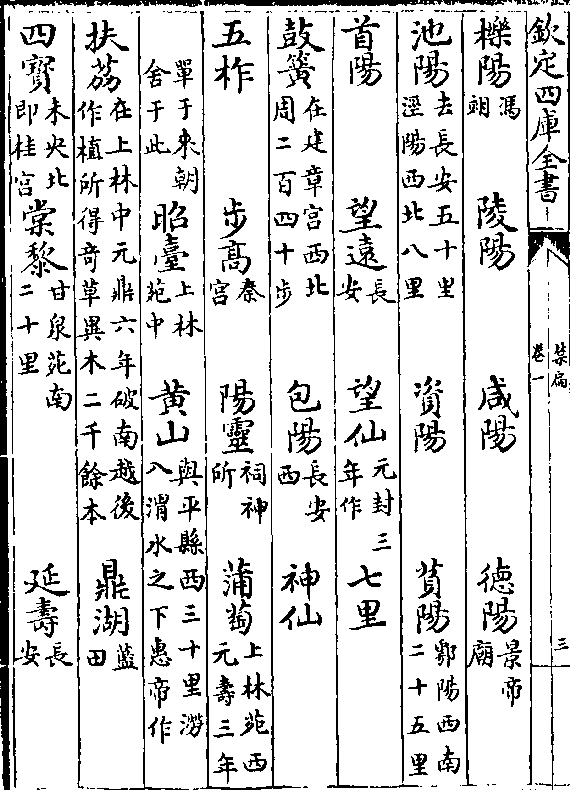 欽定四庫全書
禁扁
卷一
三
櫟陽 馮翊 陵陽 咸陽 德陽 景帝廟
池陽 去長安五十里涇陽西北八里 資陽 萯陽 鄠陽西南二十五里
首陽 望遠 長安 望仙 元封三年作 七里
鼓簧 在建章宮西北周二百四十步 包陽 長安西 神仙
五柞 步高 秦宮 陽靈 祠神所 蒲萄 上林苑西元壽三年
單于來朝舍于此 昭臺 上林苑中 黃山 與平縣西三十里澇八渭水之下惠帝作
扶荔 在上林中元鼎六年破南越後作植所得奇草異木二千餘本 鼎湖 藍田
四寳 未央北即桂宮 棠黎 甘泉苑南二十里 延壽 長安